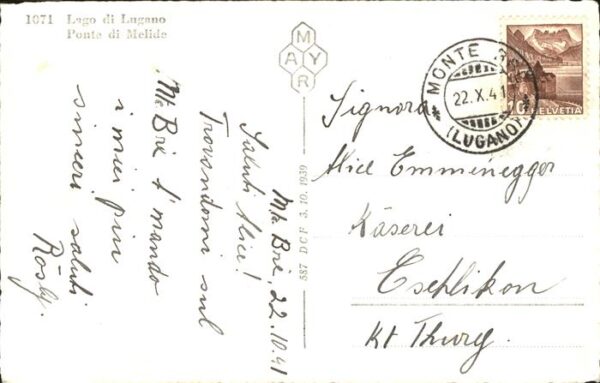 1071 Lago di Lugano
Ponte di Melide
MAYR
587 DCF 3.10.1939
Mte Brè, 22.10.41
Saluti Alice!
Trovandomi sul
Mte Brè t'mando
i miei più
sinceri saluti
Rösly.
MONTE
22.X.41
(LUGANO)
10 HELVETIA
Signora
Alice Emmenegger
Käserei
Eschlikon
Kt Thurg.